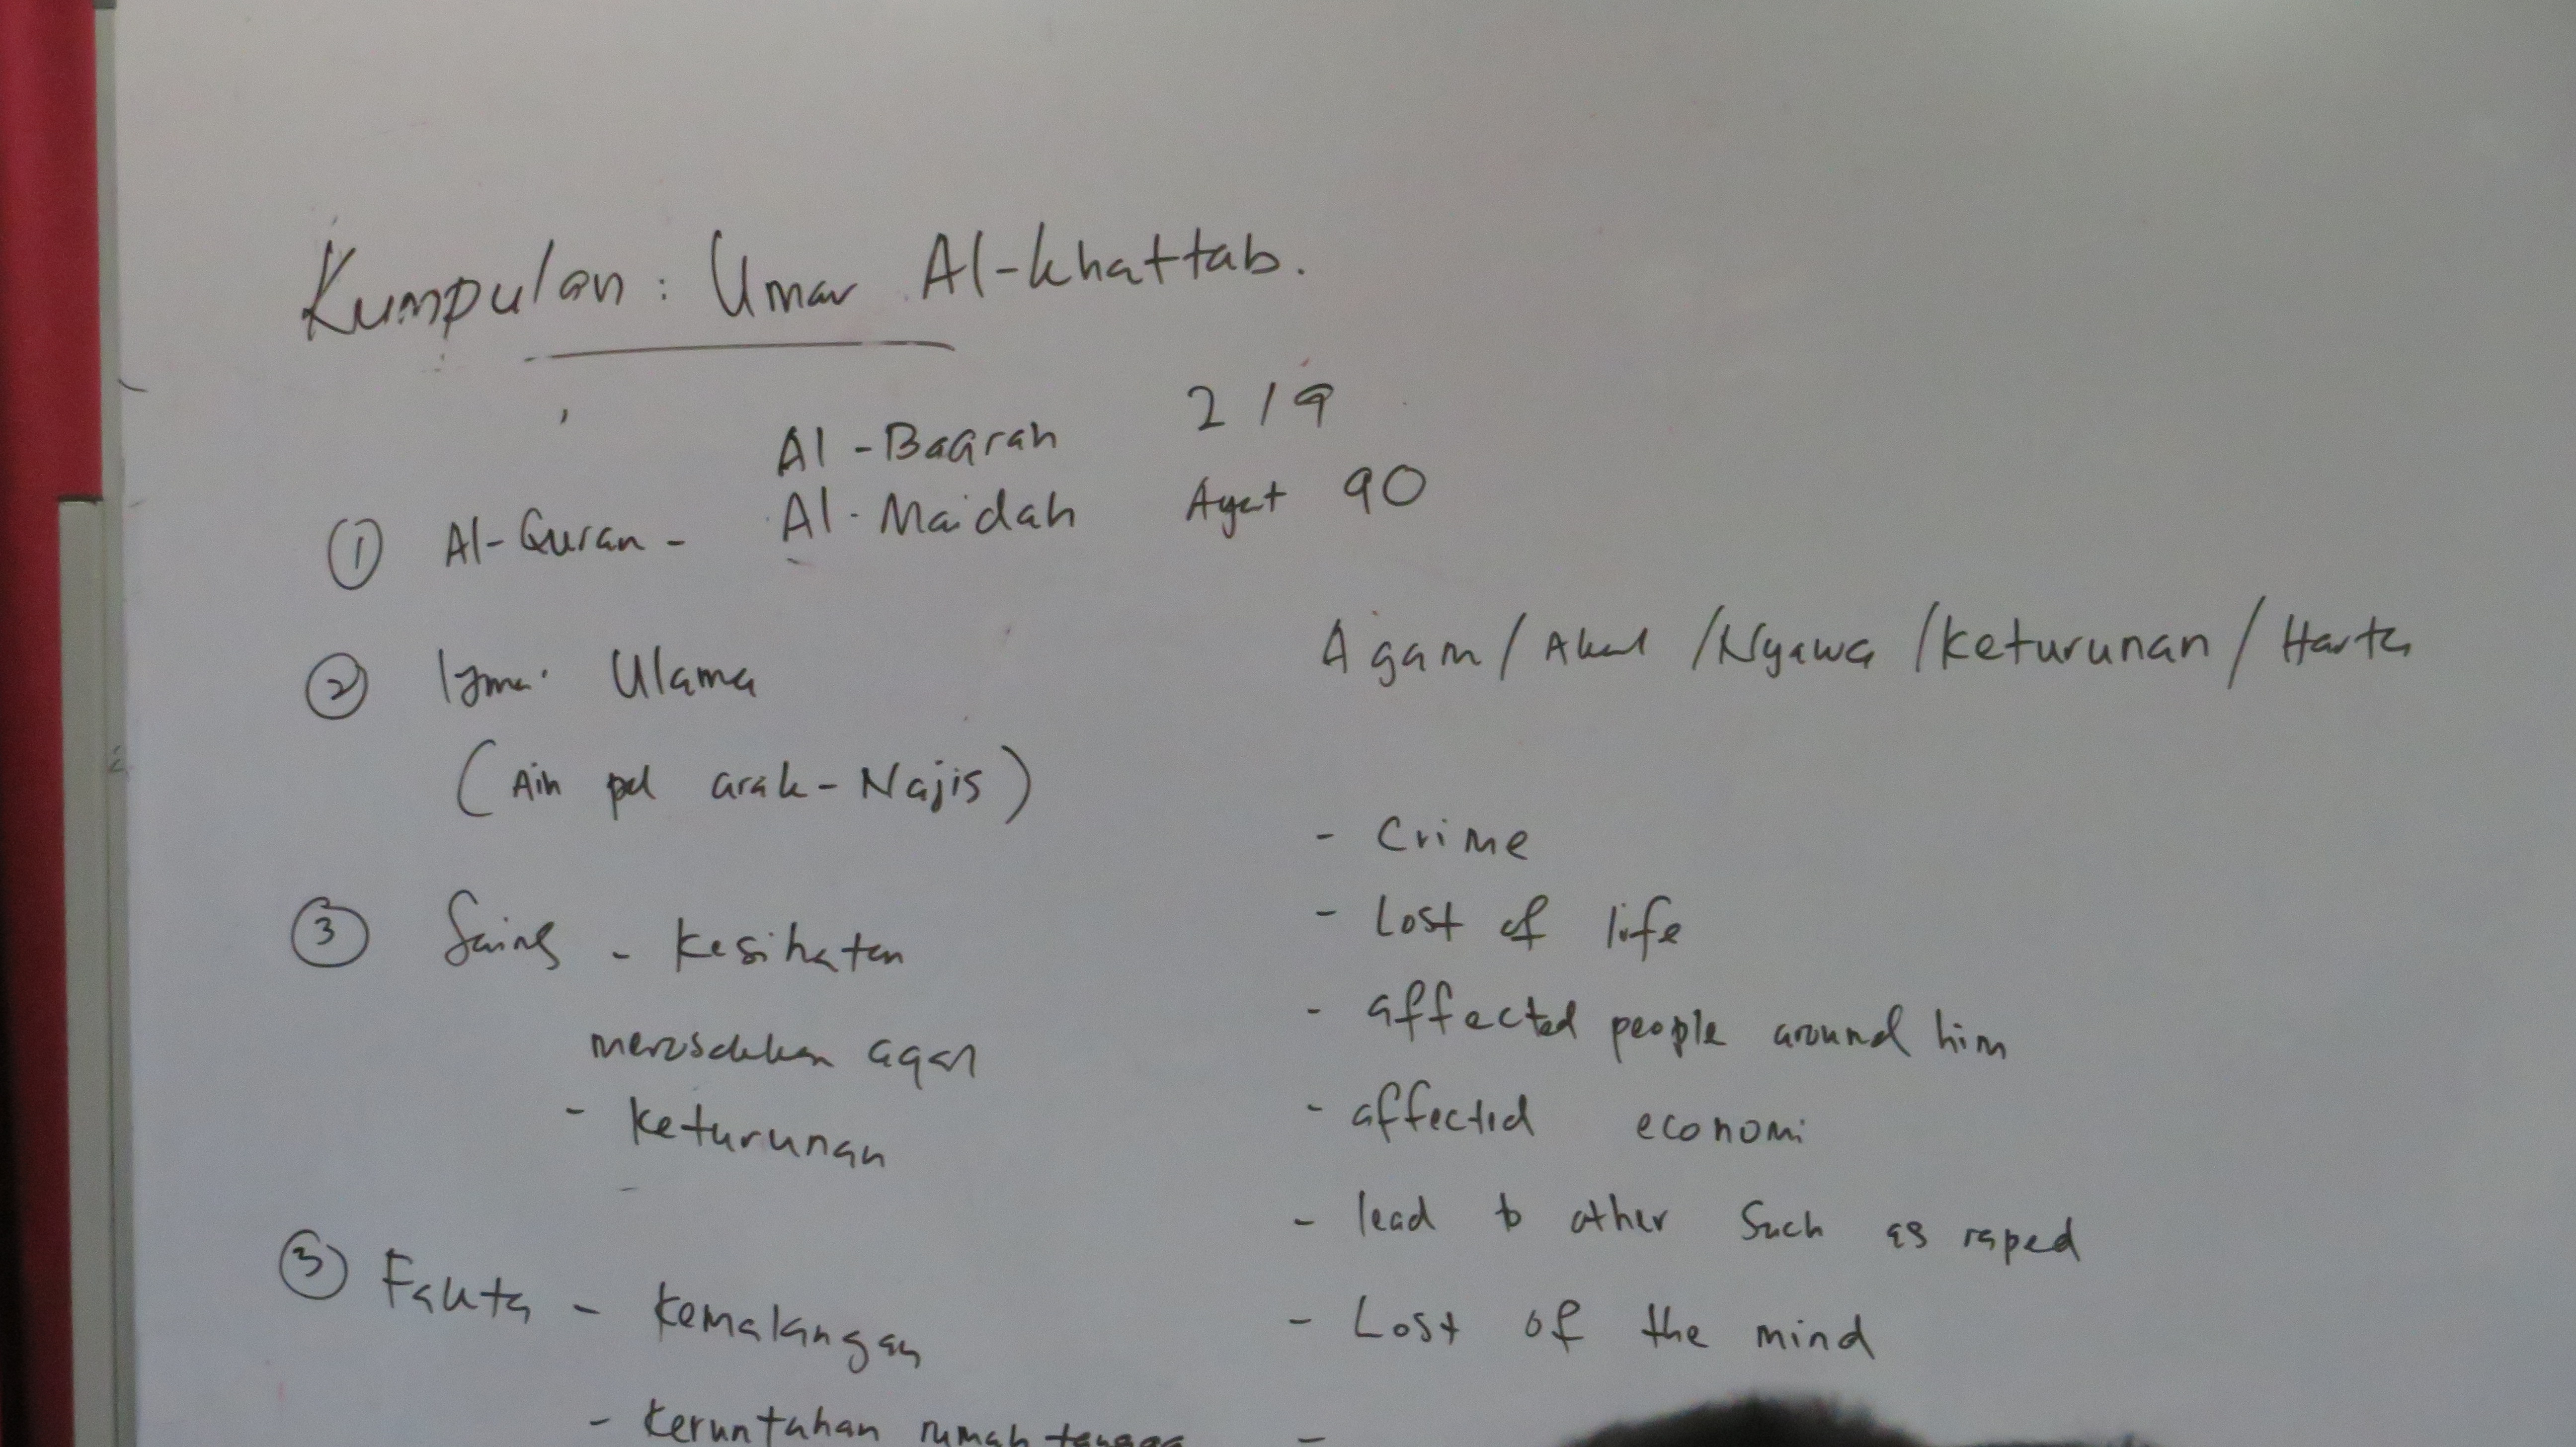 Kumpulan : Umar Al-khattab.
Al-Baqrah 219
① Al-Quran - Al-Maidah Ayat 90
② Ijma' Ulama
(Ain pd arak - Najis)
③ Sains - kesihatan
merosakkan aqal
- keturunan
③ Fakta - kemalangan
- keruntuhan rumah tangga
Agam / Akal / Nyawa / keturunan / Harta
- Crime
- Lost of life
- affected people around him
- affected economi
- lead to other such as raped
- Lost of the mind
-